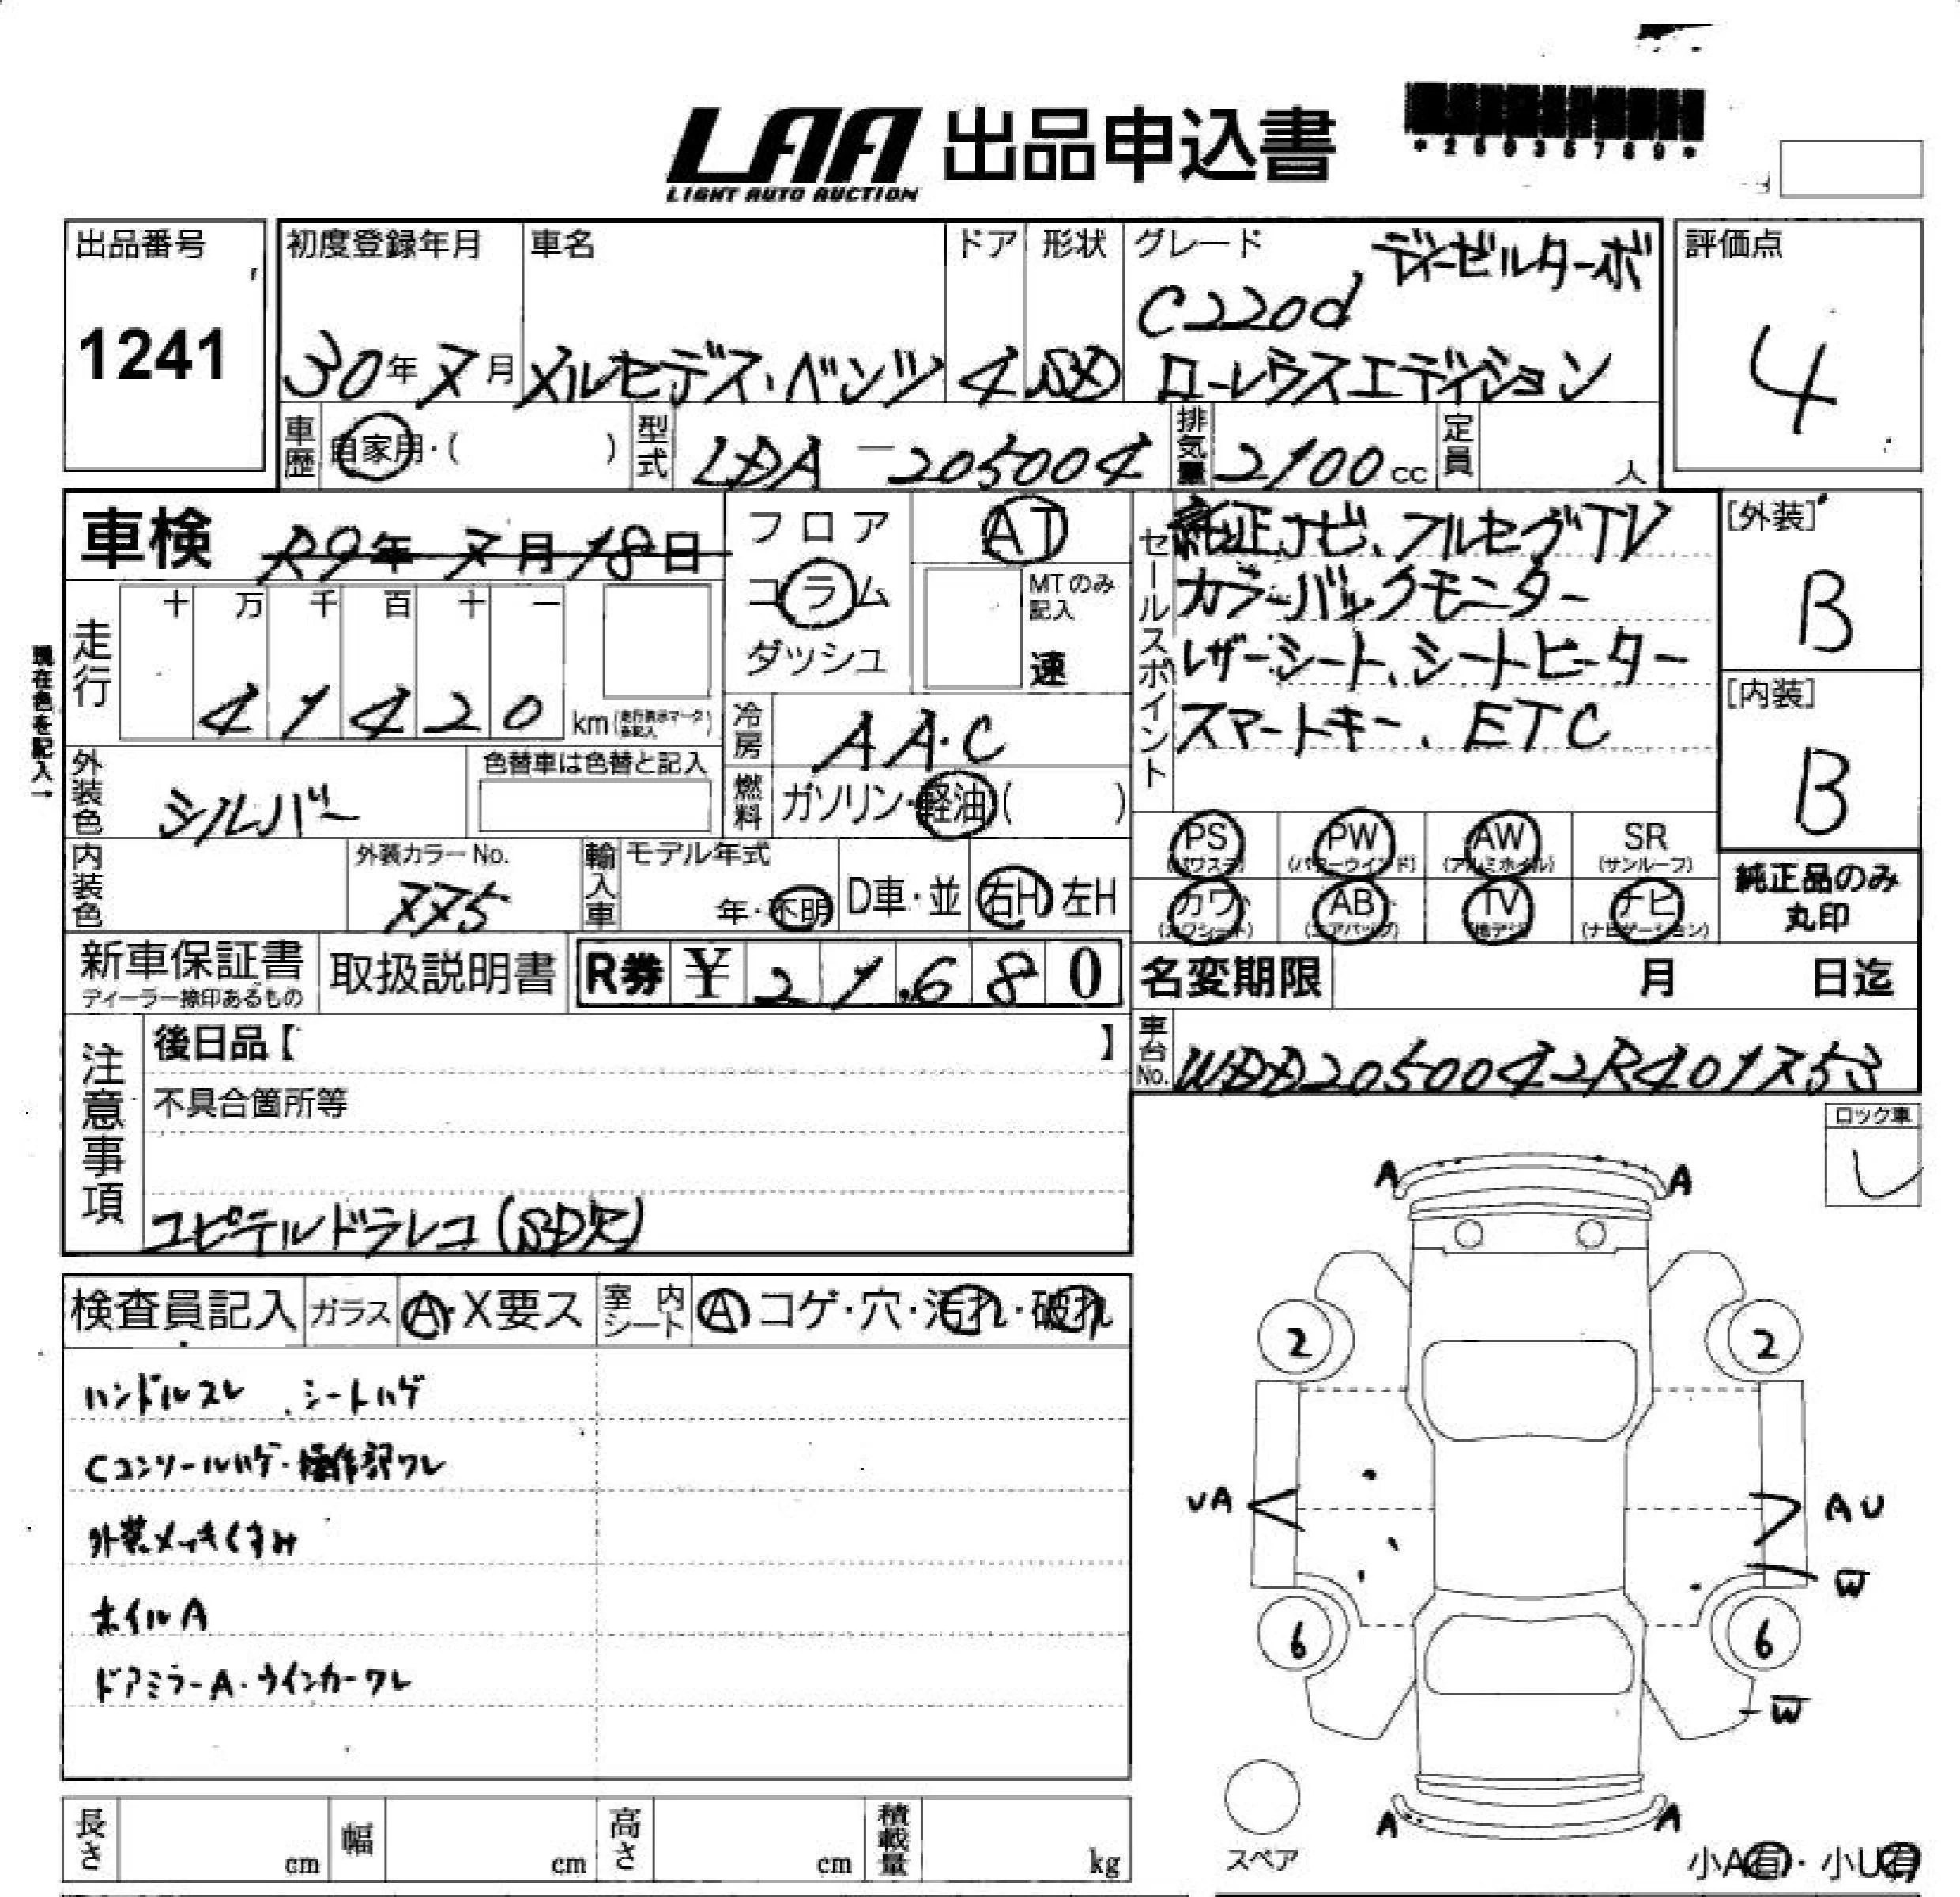 LAA 出品申込書
LIGHT AUTO AUCTION
出品番号
1241
初度登録年月
30年7月
車名
メルセデス・ベンツ
ドア
4
形状
SD
グレード
ディーゼルターボ
C220d
ローレウスエディション
評価点
4
車歴
自家用・( )
型式
LDA-205004
排気量
2100cc
定員
人
車検
R9年7月18日
フロア
コラム
ダッシュ
AT
MTのみ記入
速
セールスポイント
純正ナビ、フルセグTV
カラーバックモニター
レザーシート、シートヒーター
スマートキー、ETC
[外装]
B
[内装]
B
現在色を記入→
走行
十 万 千 百 十 一
41420 km
冷房
AAC
外装色
シルバー
色替車は色替と記入
燃料
ガソリン・軽油( )
PS (パワステ)
PW (パワーウインド)
AW (アルミホイル)
SR (サンルーフ)
カワ (カワシート)
AB (エアバッグ)
TV (地デジ)
ナビ (ナビゲーション)
純正品のみ
丸印
内装色
外装カラーNo.
775
輸入車
モデル年式
年・不明
D車・並
右H 左H
新車保証書
ディーラー捺印あるもの
取扱説明書
R券 ¥ 21,680
名変期限 月 日迄
車台No.
WDD2050042R401753
注意事項
後日品【 】
不具合箇所等
ユピテルドラレコ(SD欠)
ロック車
検査員記入
ガラス
A・X要ス
室内シート
A コゲ・穴・汚れ・破れ
ハンドルスレ . シートハゲ
Cコンソールハゲ・操作部ワレ
外装メッキくすみ
ホイルA
ドアミラーA・ウインカーワレ
A A
2 2
UA AU
W
6 6
W
A A
スペア
小A有・小U有
長さ cm
幅 cm
高さ cm
積載量 kg